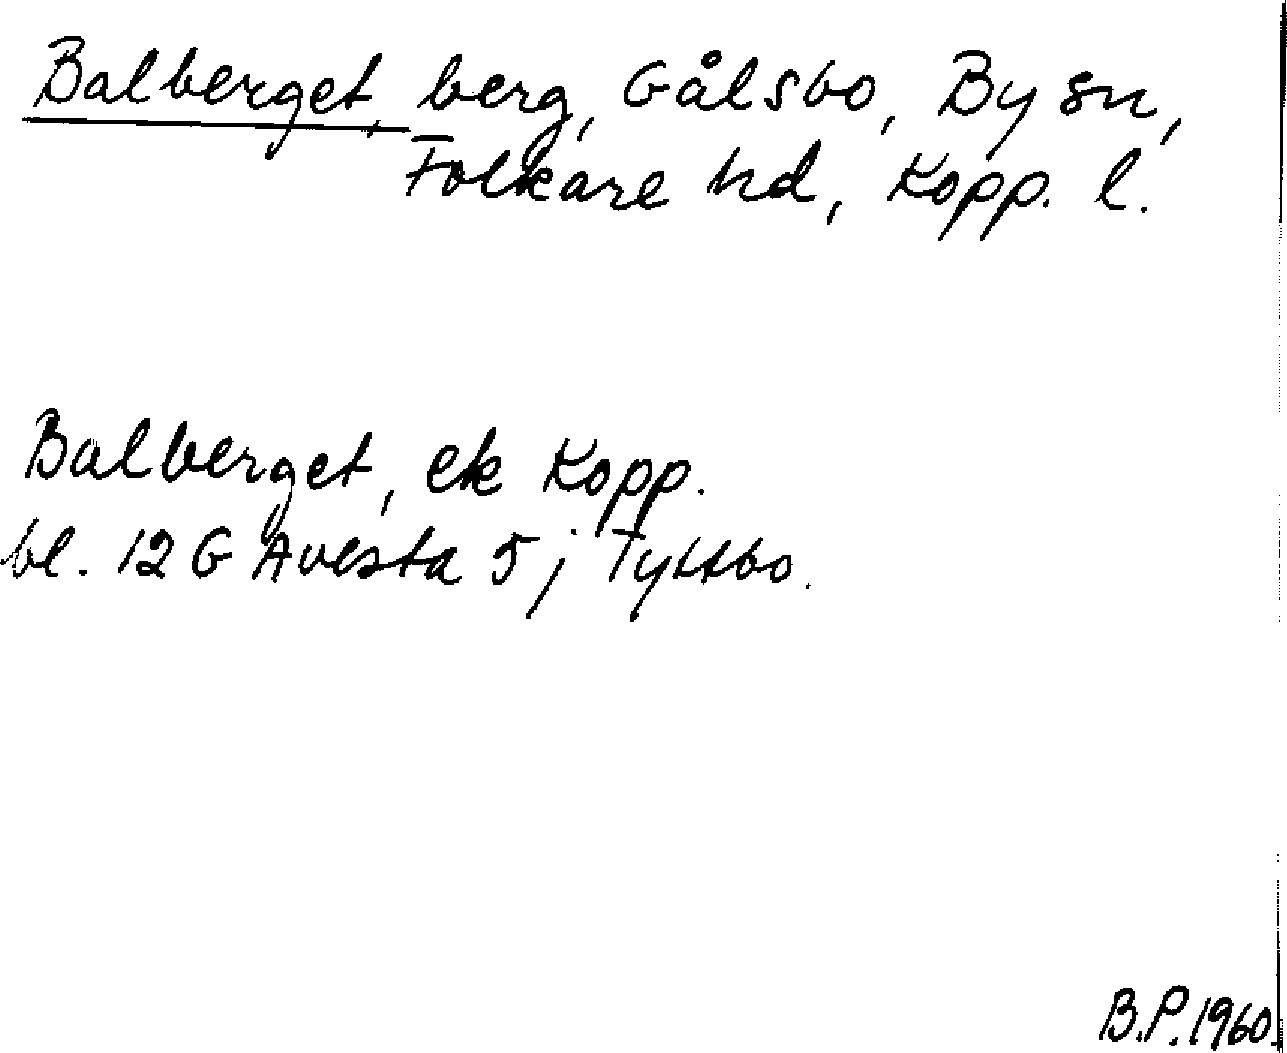 Balberget, berg, Gålsbo, By sn,
Folkare hd, Kopp. l.
Balberget, ek Kopp.
bl. 12 G Avesta 5 j Tyttbo.
B.P. 1960.